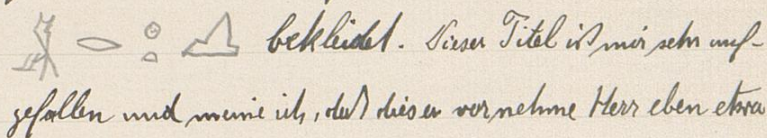 bekleidet. Dieser Titel ist mir sehr auf-
gefallen und meine ich, daß dieser vornehme Herr eben etwa